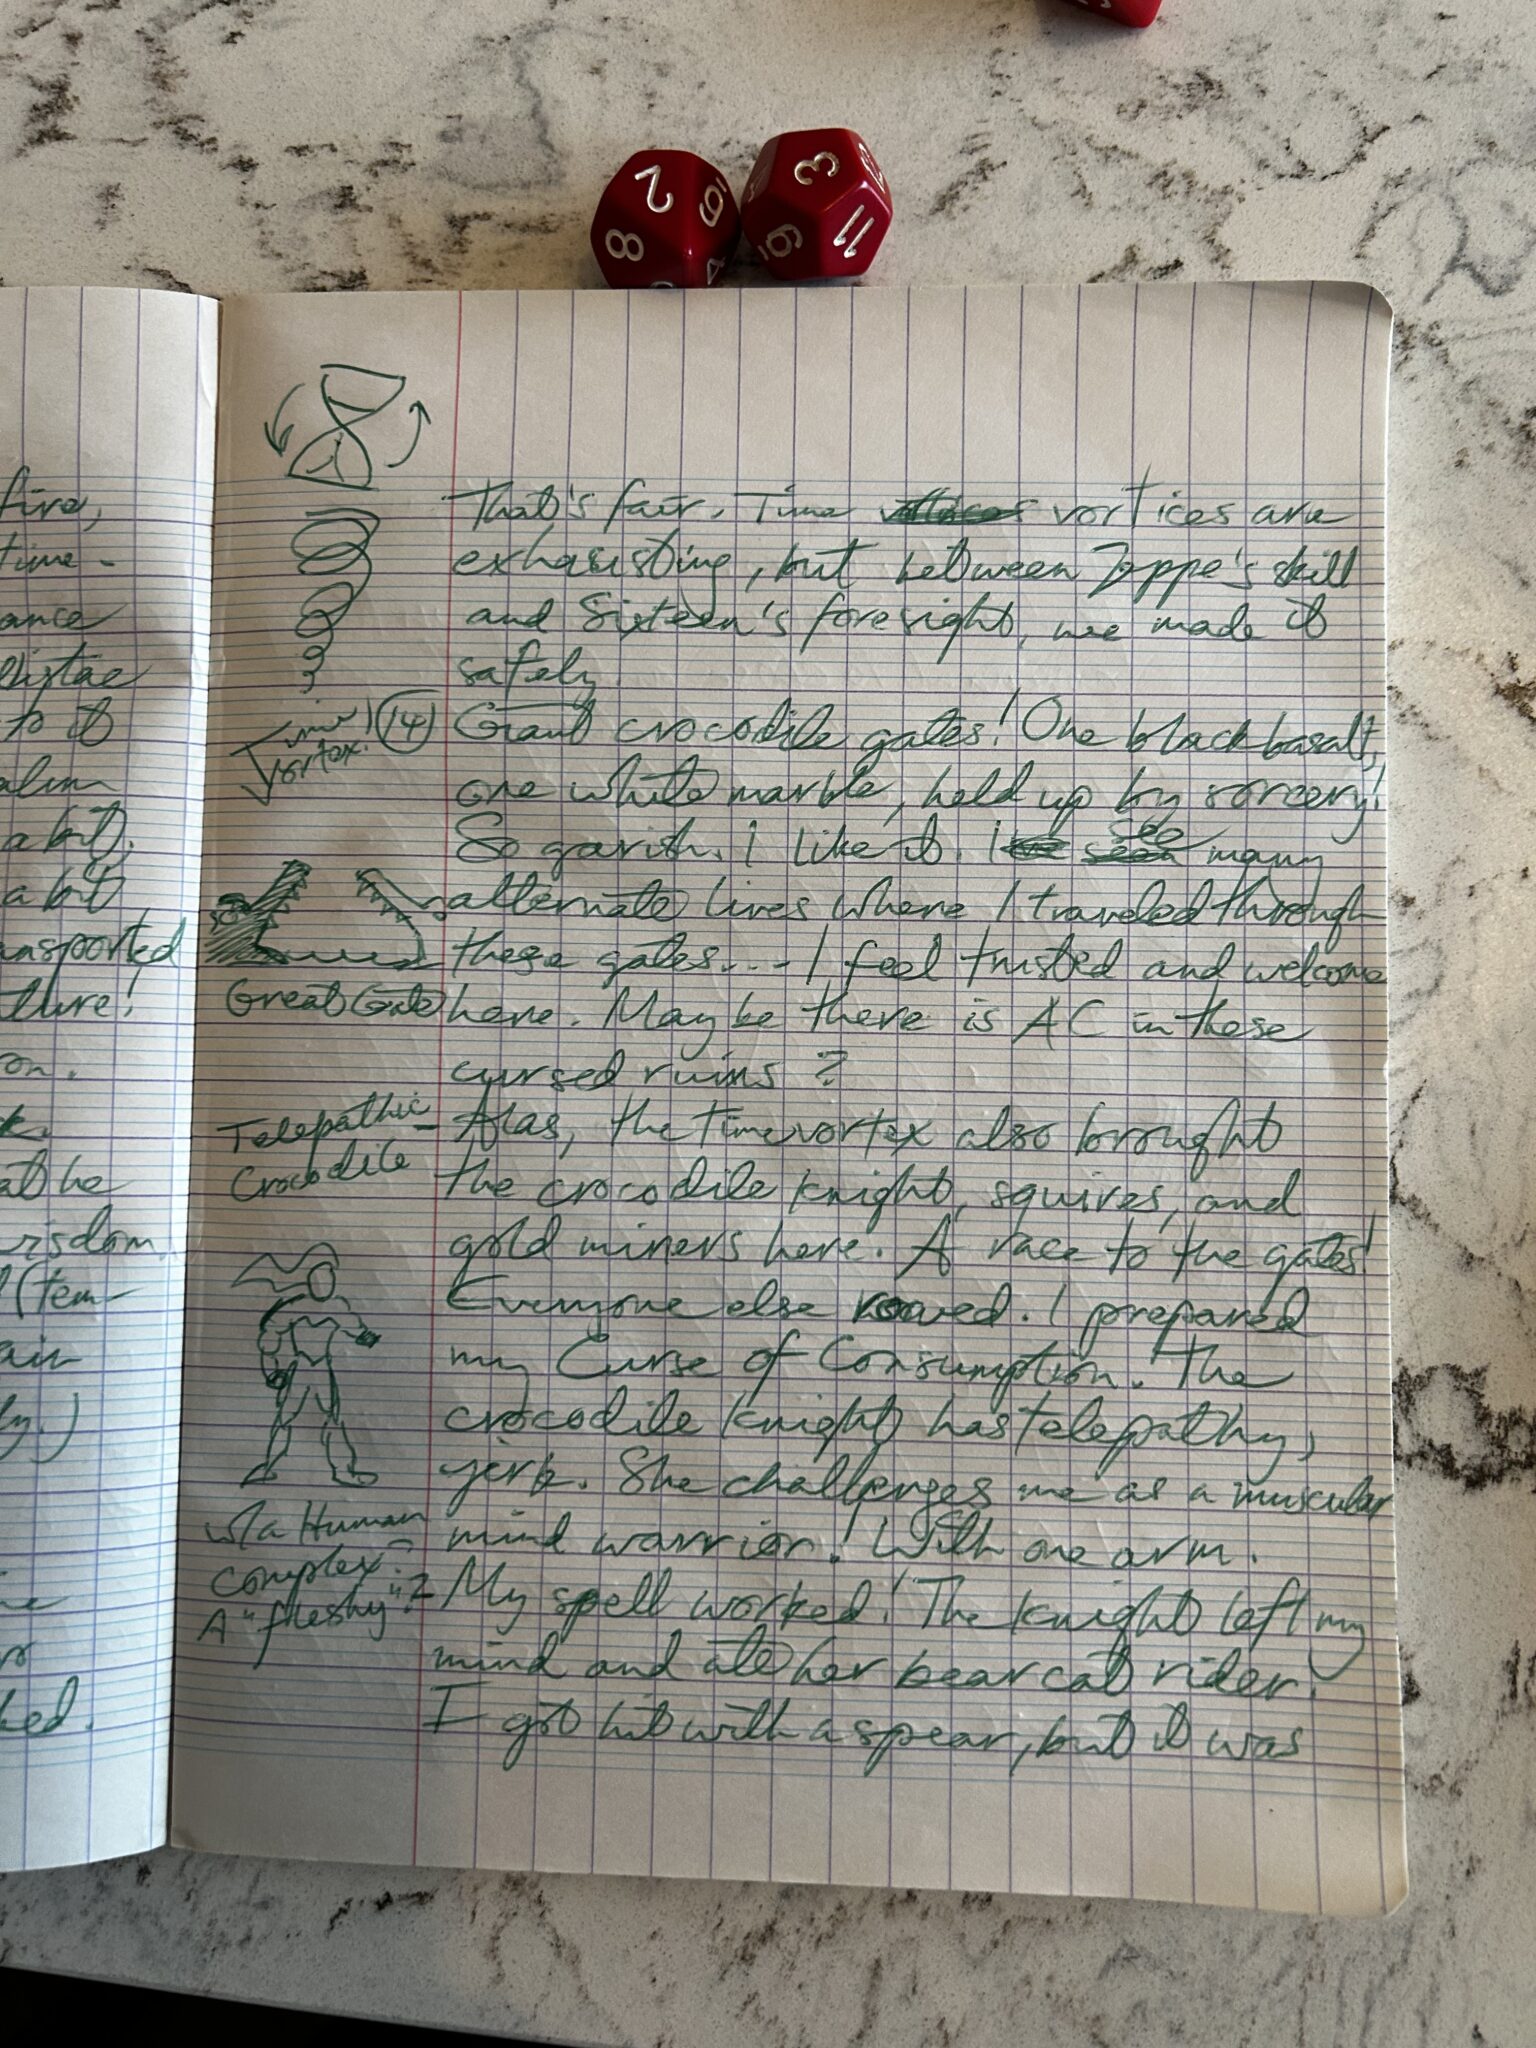 2
6
8
4
3
11
9
fire,
time-
ance
to it
a bit.
a bit
ansported
ture!
on.
at he
(tem-
ly.)
ked.
That's fair. Time vortices are
exhausting, but between Zoppe's skill
and Sixteen's foresight, we made it
safely.
Time Vortex! (14) Giant crocodile gates! One black basalt,
one white marble, held up by sorcery!
So garish. I like it. I see many
alternate lives where I traveled through
these gates... I feel trusted and welcome
Great Gate here. Maybe there is AC in these
cursed ruins?
Telepathic Alas, the time vortex also brought
Crocodile the crocodile knight, squires, and
gold miners here. A race to the gates!
Everyone else roared. I prepared
my Curse of Consumption. The
crocodile knight has telepathy,
jerk. She challenges me as a muscular
w/a Human mind warrior! With one arm.
complex.
A "fleshy"? My spell worked! The knight left my
mind and ate her bearcat rider.
I got hit with a spear, but it was